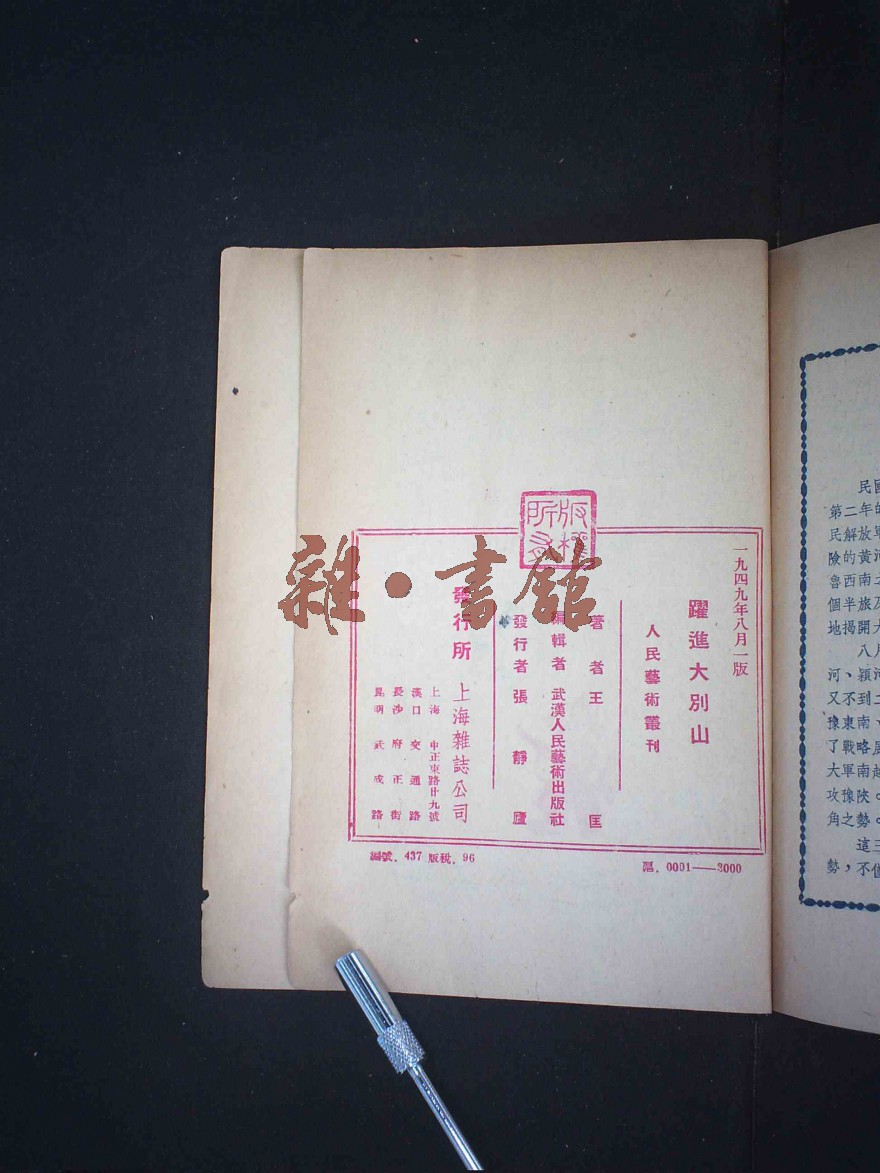 一九四九年八月一版
躍進大別山
人民藝術叢刊
著者 王匡
編輯者 武漢人民藝術出版社
發行者 張靜廬
發行所 上海雜誌公司
上海 中正東路廿九號
漢口 交通路
長沙 府正街
昆明 武成路
版權所有
編號．437 版稅．96
0001——3000
雜·書館
民國
第二年的
民解放軍
險的黃河
魯西南之
個半旅及
地揭開大
八月
河、潁河
又不到二
豫東南、
了戰略展
大軍南越
攻豫陝。
角之勢。
這三
勢，不僅